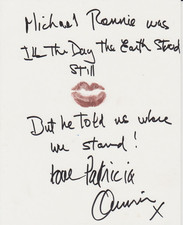 Michael Rennie was
Ill The Day The Earth Stood
Still
But he told us where
we stand!
Love Patricia
Quinn
X